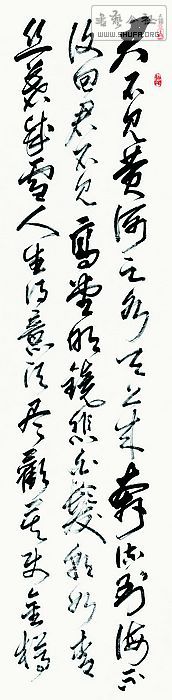 书艺公社
WWW.SHUFA.ORG
君不见黄河之水天上来奔流到海不
復回君不见高堂明镜悲白髮朝如青
丝暮成雪人生得意须尽歡莫使金樽